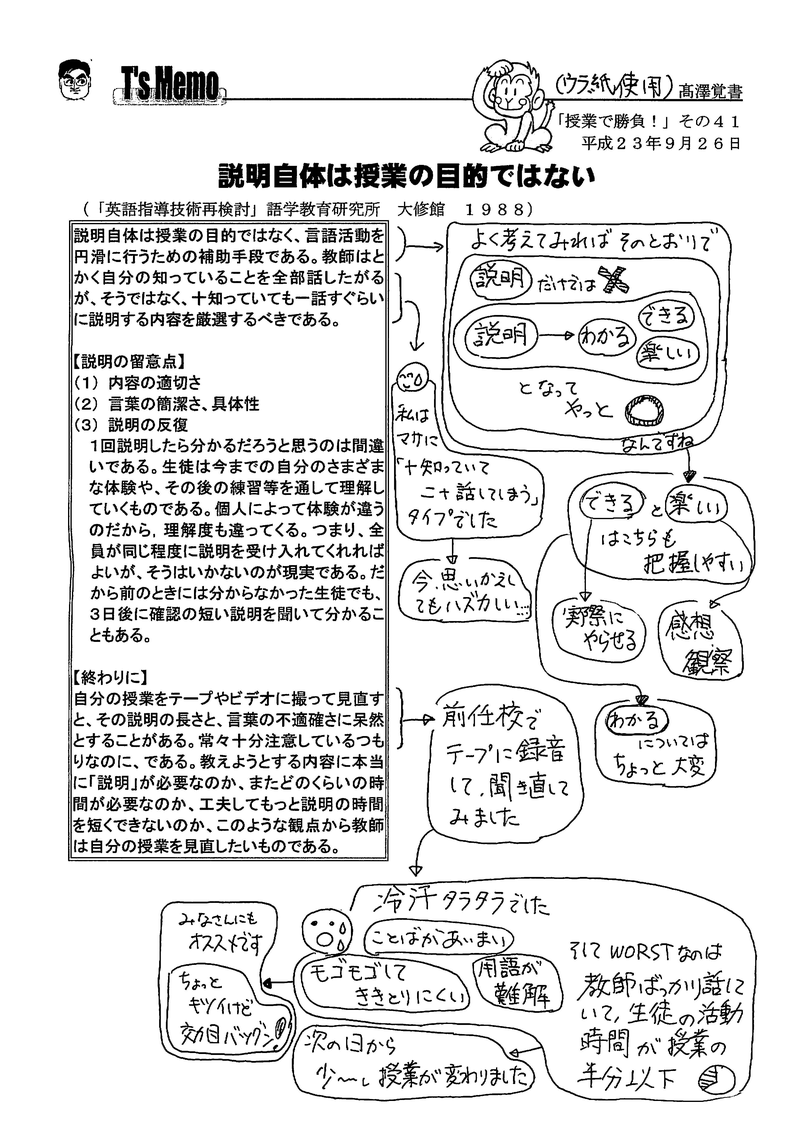 T's Memo
(ウラ紙使用)髙澤覚書
「授業で勝負!」その41
平成23年9月26日
説明自体は授業の目的ではない
(「英語指導技術再検討」語学教育研究所 大修館 1988)
説明自体は授業の目的ではなく、言語活動を
円滑に行うための補助手段である。教師はと
かく自分の知っていることを全部話したがる
が、そうではなく、十知っていても一話すぐらい
に説明する内容を厳選するべきである。
【説明の留意点】
(1) 内容の適切さ
(2) 言葉の簡潔さ、具体性
(3) 説明の反復
1回説明したら分かるだろうと思うのは間違
いである。生徒は今までの自分のさまざま
な体験や、その後の練習等を通して理解し
ていくものである。個人によって体験が違う
のだから, 理解度も違ってくる。つまり、全
員が同じ程度に説明を受け入れてくれれば
よいが、そうはいかないのが現実である。だ
から前のときには分からなかった生徒でも、
3日後に確認の短い説明を聞いて分かるこ
ともある。
【終わりに】
自分の授業をテープやビデオに撮って見直す
と、その説明の長さと、言葉の不適確さに呆然
とすることがある。常々十分注意しているつも
りなのに、である。教えようとする内容に本当
に「説明」が必要なのか、またどのくらいの時
間が必要なのか、工夫してもっと説明の時間
を短くできないのか、このような観点から教師
は自分の授業を見直したいものである。
よく考えてみれば そのとおりで
説明 だけでは
説明 わかる できる
楽しい
となって
やっと
なんですね
私は
マサに
「十知っていて
二十話してしまう」
タイプでした
今、思いかえし
てもハズカしい…
できる と 楽しい
はこちらも
把握しやすい
実際に
やらせる
感想
観察
わかる
については
ちょっと大変
前任校で
テープに録音
して、聞き直して
みました
冷汗タラタラでした
ことばがあいまい
モゴモゴして
ききとりにくい
用語が
難解
そして WORSTなのは
教師ばっかり話して
いて、生徒の活動
時間が授業の
半分以下
次の日から
少〜し授業が変わりました
みなさんにも
オススメです
ちょっと
キツイけど
効目バツグン!